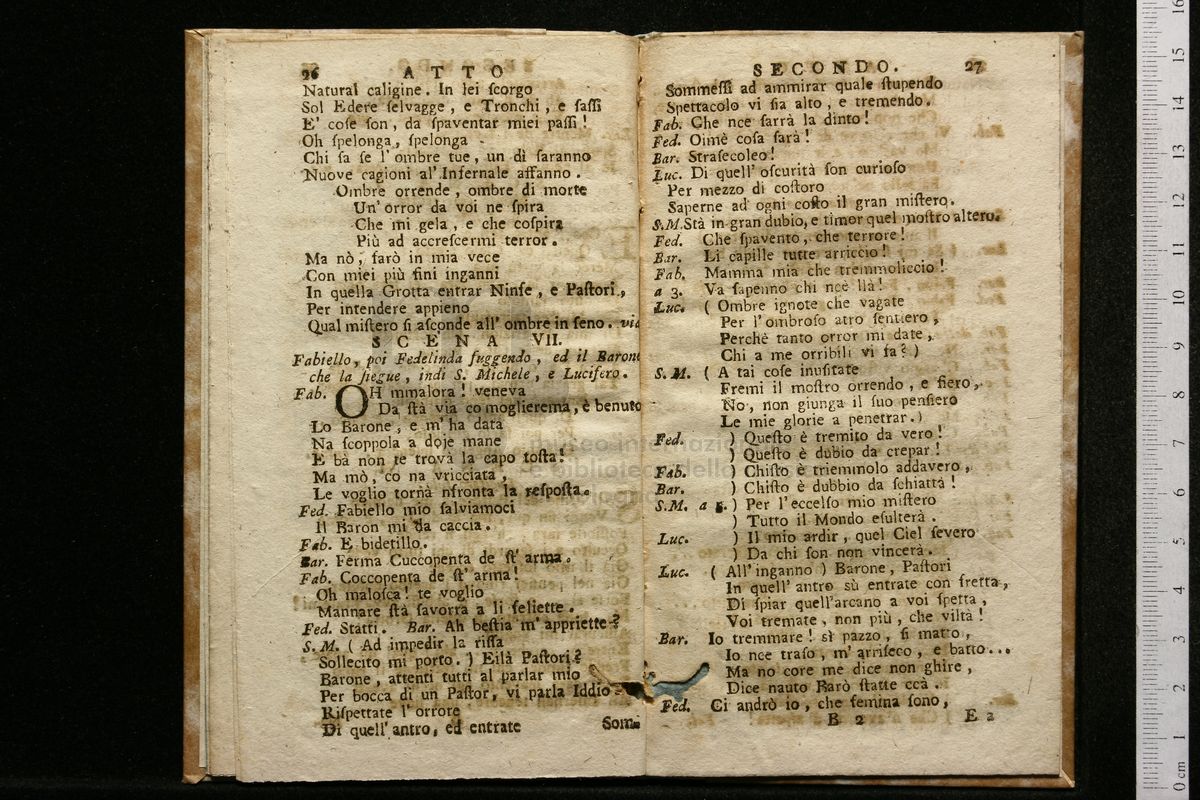 26 ATTO
Natural caligine. In lei scorgo
Sol Edere selvagge, e Tronchi, e sassi
E' cose son, da spaventar miei passi!
Oh spelonga, spelonga
Chi sa se l'ombre tue, un dì saranno
Nuove cagioni al'Infernale affanno.
Ombre orrende, ombre di morte
Un'orror da voi ne spira
Che mi gela, e che cospira
Più ad accrescermi terror.
Ma nò, farò in mia vece
Con miei più fini inganni
In quella Grotta entrar Ninfe, e Pastori,
Per intendere appieno
Qual mistero si asconde all'ombre in seno. via
SCENA VII.
Fabiello, poi Fedelinda fuggendo, ed il Barone
che la siegue, indi S. Michele, e Lucifero.
Fab. OH mmalora! veneva
Da stà via co moglierema, è benuto
Lo Barone, e m'ha data
Na scoppola a doje mane
E bà non te trovà la capo tosta!
Ma mò, co na vricciata,
Le voglio tornà nfronta la resposta.
Fed. Fabiello mio salviamoci
Il Baron mi da caccia.
Fab. E bidetillo.
Bar. Ferma Cuccopenta de st'arma.
Fab. Coccopenta de st'arma!
Oh malosca! te voglio
Mannare stà savorra a li feliette.
Fed. Statti. Bar. Ah bestia m'appriette?
S.M. (Ad impedir la rissa
Sollecito mi porto.) Eilà Pastori?
Barone, attenti tutti al parlar mio
Per bocca di un Pastor, vi parla Iddio
Rispettate l'orrore
Di quell'antro, ed entrate
Som-
SECONDO. 27
Sommessi ad ammirar quale stupendo
Spettacolo vi sia alto, e tremendo.
Fab. Che nce sarrà la dinto!
Fed. Oimè cosa sarà!
Bar. Strasecoleo!
Luc. Di quell'oscurità son curioso
Per mezzo di costoro
Saperne ad ogni costo il gran mistero.
S.M. Stà in gran dubio, e timor quel mostro altero.
Fed. Che spavento, che terrore!
Bar. Li capille tutte arriccio!
Fab. Mamma mia che tremmoliccio!
a 3. Va sapenno chi nce llà!
Luc. (Ombre ignote che vagate
Per l'ombroso atro sentiero,
Perchè tanto orror mi date,
Chi a me orribili vi fa?)
S.M. (A tai cose inusitate
Fremi il mostro orrendo, e fiero,
No, non giunga il suo pensiero
Le mie glorie a penetrar.)
Fed. ) Questo è tremito da vero!
) Questo è dubio da crepar!
Fab. ) Chisto è triemmolo addavero,
Bar. ) Chisto è dubbio da schiattà!
S.M. a 5. ) Per l'eccelso mio mistero
) Tutto il Mondo esulterà.
Luc. ) Il mio ardir, quel Ciel severo
) Da chi son non vincerà.
Luc. (All'inganno) Barone, Pastori
In quell'antro sù entrate con fretta,
Di spiar quell'arcano a voi spetta,
Voi tremate, non più, che viltà!
Bar. Io tremmare! sì pazzo, si matto,
Io nce traso, m'arriseco, e batto...
Ma no core me dice non ghire,
Dice nauto Barò statte ccà.
Fed. Ci andrò io, che femina sono,
B 2 E 2